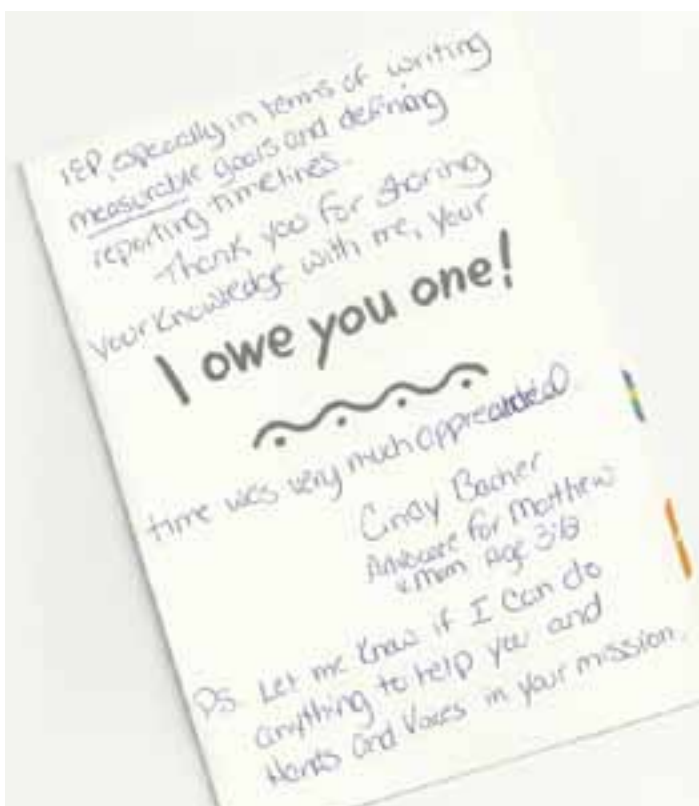 IEP, especially in terms of writing
measurable goals and defining
reporting timelines.
Thank you for sharing
your knowledge with me, your
I owe you one!
time was very much appreciated.
Cindy
Advocate for Matthew
& Mom Age
PS. Let me know if I can do
anything to help you and
Hands and Voices in your mission.